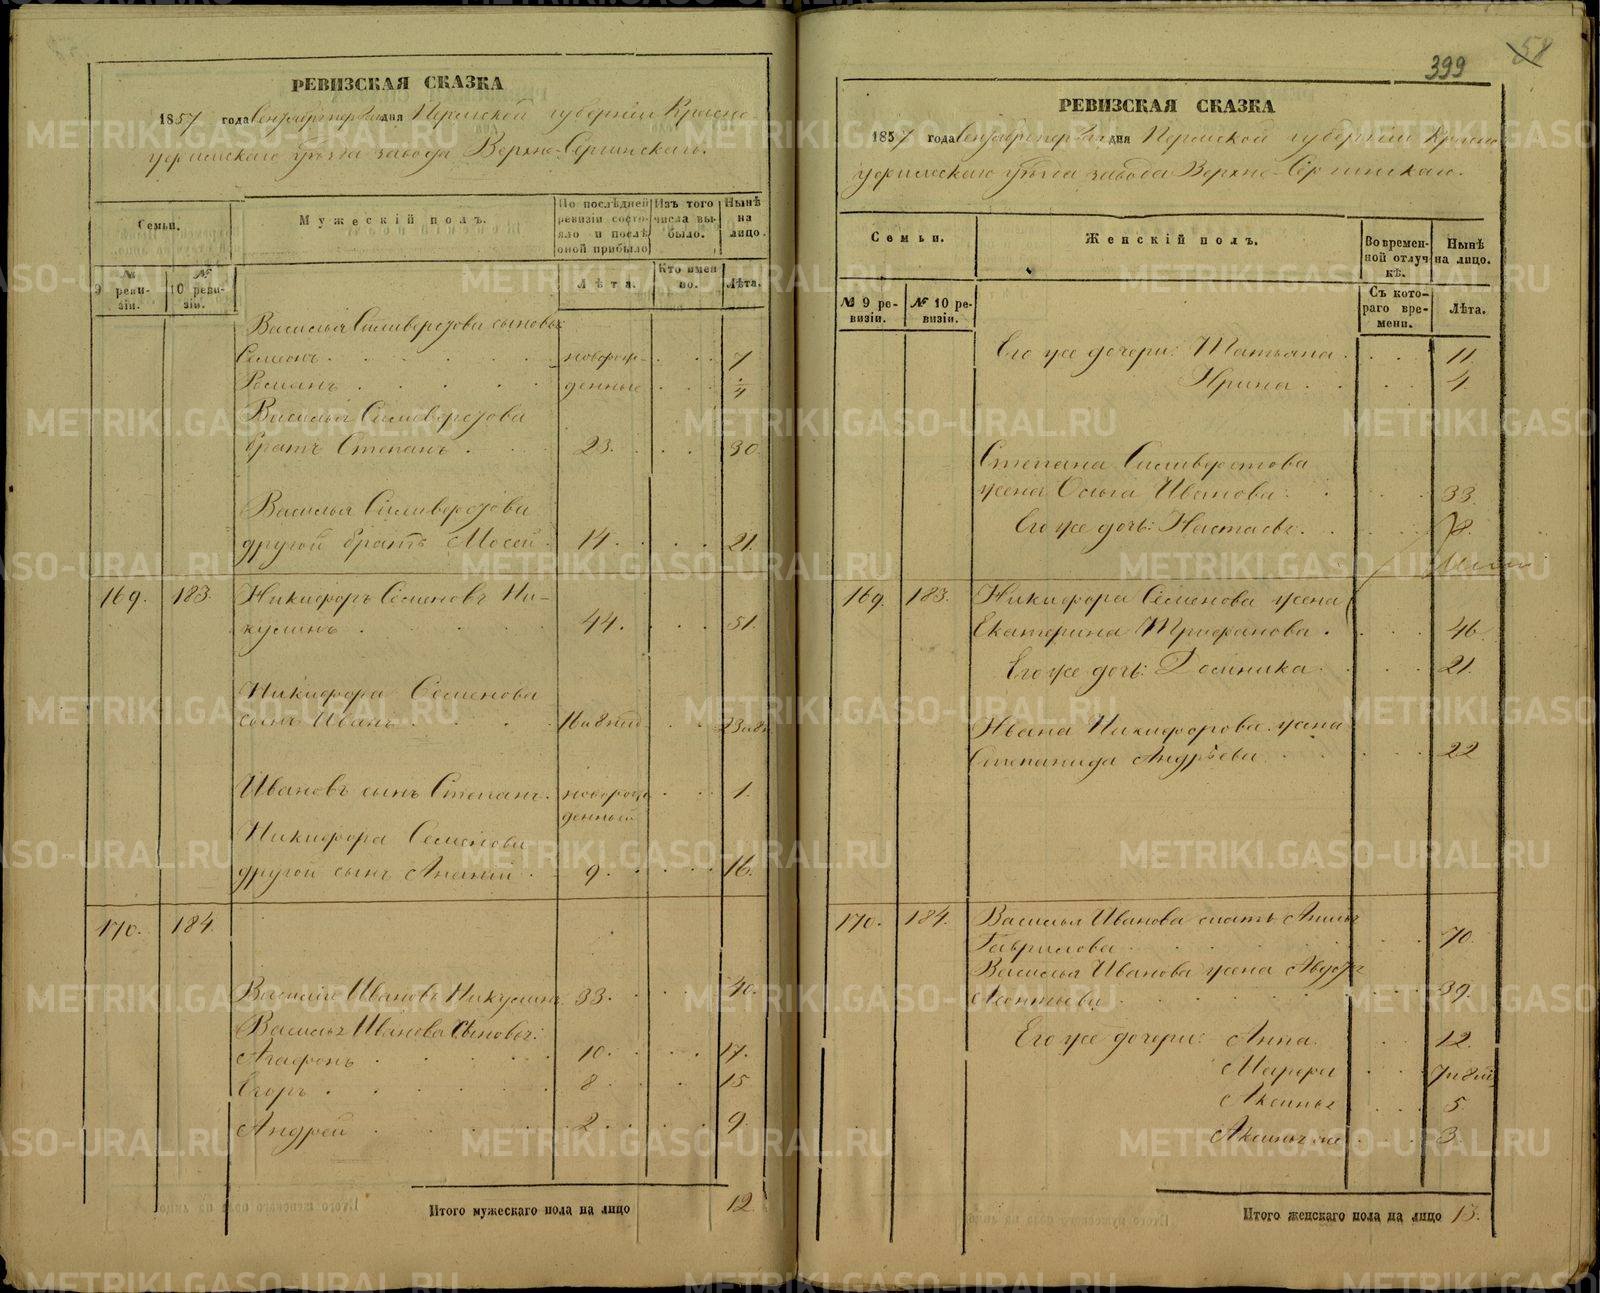 РЕВИЗСКАЯ СКАЗКА
1857 года Сентября дня Пермской губернии Красно-
уфимскаго уѣзда завода Верхне-Сергинскаго.
Семьи.
Мужескій полъ.
По послѣдней ревизіи состояло и послѣ оной прибыло
Изъ того числа выбыло.
Нынѣ на лицо.
№ 9 ревизіи.
№ 10 ревизіи.
Лѣта.
Кто имен но.
Лѣта.
Василья Силиверстова сыновья
Семенъ новорож- 7
Романъ денные
Василья Силиверстова
братъ Степанъ 23. 30
Василья Силиверстова
другой братъ Мосей 14. 21.
169. 183. Никифоръ Семеновъ Ни-
кулинъ 44. 51.
Никифора Семенова
сынъ Иванъ
Ивановъ сынъ Степанъ новорож 1.
денный
Никифора Семенова
другой сынъ Ананій 9. 16.
170. 184.
Василій Ивановъ Никулинъ 33. 40.
Василья Иванова сыновья:
Агафонъ 10. 17.
Егоръ 8 15
Андрей 2. 9.
Итого мужескаго пола на лицо 12
399
58
РЕВИЗСКАЯ СКАЗКА
1857 года Сентября дня Пермской губернии Красно
уфимскаго уѣзда завода Верхне-Сергинскаго.
Семьи.
Женскій полъ.
Во временной отлучкѣ.
Нынѣ на лицо.
№ 9 ревизіи.
№ 10 ревизіи.
Съ котораго времени.
Лѣта.
Его же дочери: Татьяна 11
Ирина 4
Степана Силиверстова
жена Ольга Иванова 33
Его же дочь: Настасья
169. 183. Никифора Семенова жена
Екатерина Трифанова. 46
Его же дочь: Домника 21.
Ивана Никифорова жена
Степанида Андрѣева 22
170. 184. Василья Иванова мать
Гаврилова 70
Василья Иванова жена Авдотья
Леонтьева 39.
Его же дочери: Анна 12
Марфа
Аксинья 5
Аксинья же 3.
Итого женскаго пола на лицо 13.
METRIKI.GASO-URAL.RU